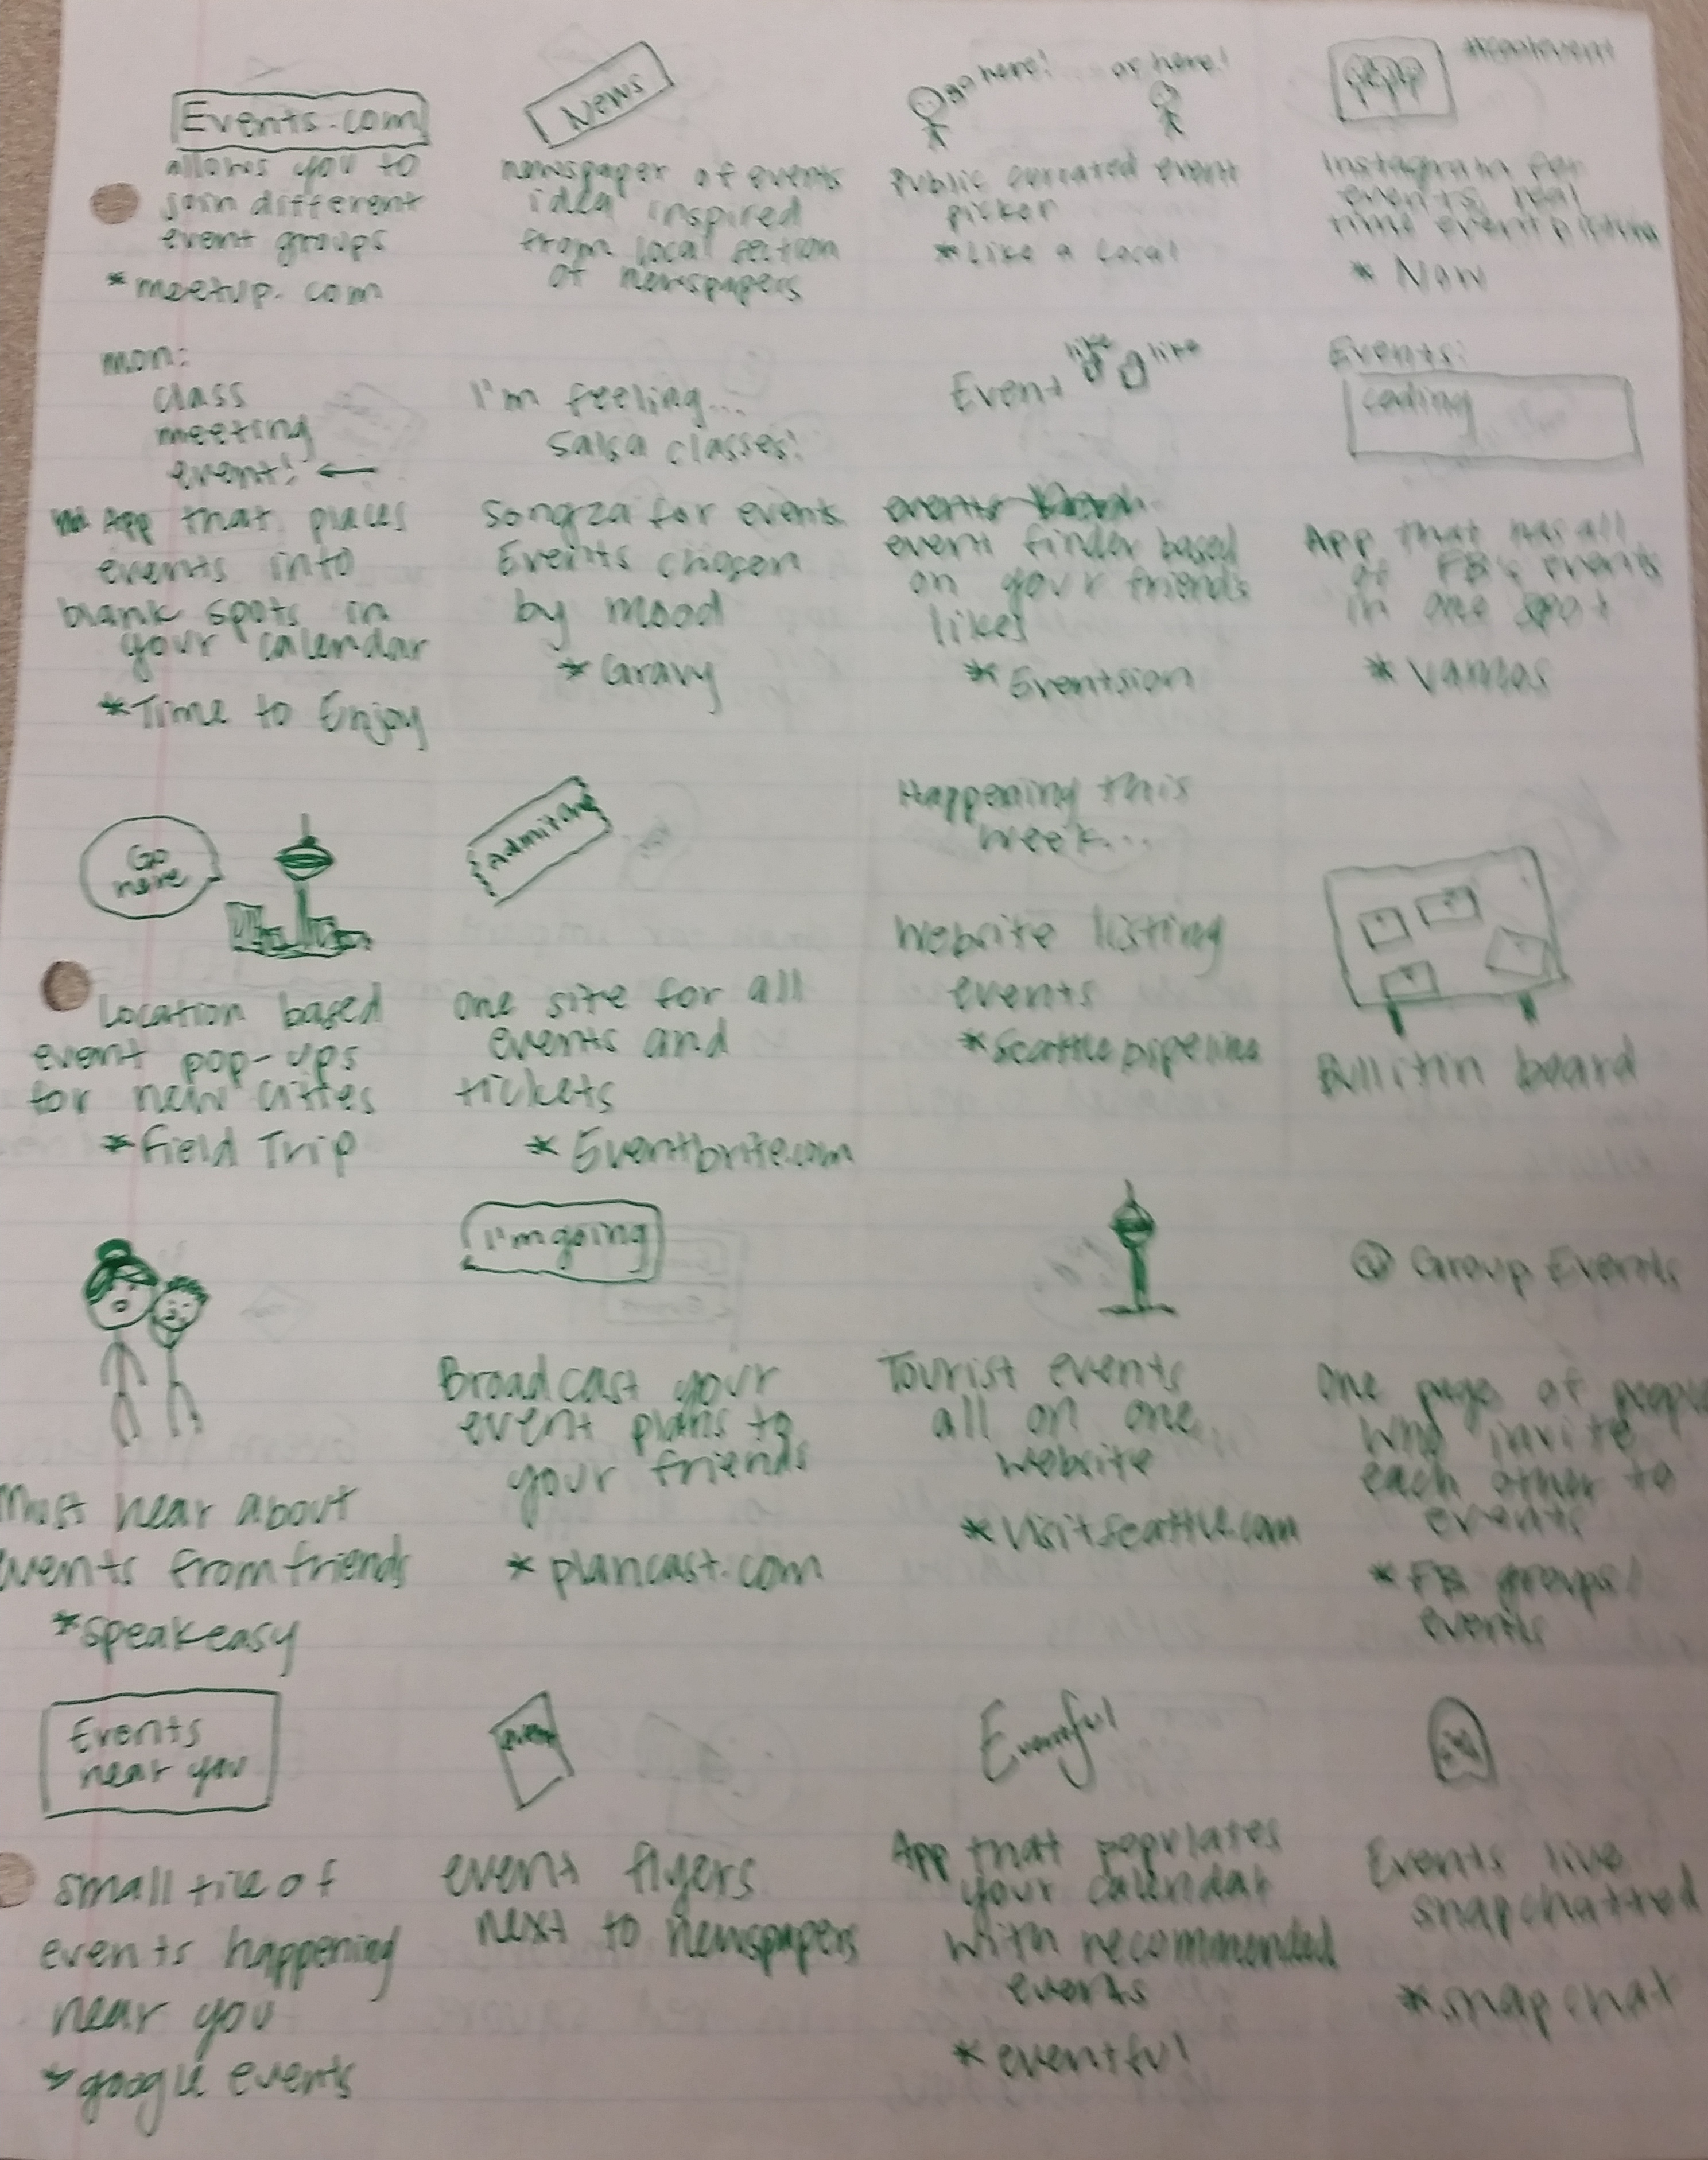 Events.com
allows you to
join different
event groups
*meetup.com
News
newspaper of events
idea inspired
from local section
of newspapers
go here!
or here!
public currated event
picker
*Like a Local
#coolevent
Instagram for
events, real
time event
* Now
mon:
class
meeting
event!
App that places
events into
blank spots in
your calendar
*Time to Enjoy
I'm feeling...
Salsa classes!
Songza for events
Events chosen
by mood
* Gravy
Event
like
like
events
event finder based
on your friends
likes
*Eventsion
Events:
coding
App that has all
of FB's events
in one spot
* Vamos
Go
here
Location based
event pop-ups
for new cities
*Field Trip
Admit one
one site for all
events and
tickets
* Eventbrite.com
Happening this
week...
Website listing
events
*Seattle pipeline
Bullitin board
Must hear about
events from friends
*speakeasy
I'm going
Broadcast your
event plans to
your friends
* plancast.com
Tourist events
all on one
website
*Visitseattle.com
Group Events
One page of people
who invite
each other to
events
*FB groups/
events
Events
near you
small tile of
events happening
near you
*google events
event
event flyers
next to newspapers
Eventful
App that populates
your calendar
with recommended
events
*eventful
Events live
snapchatted
*snapchat